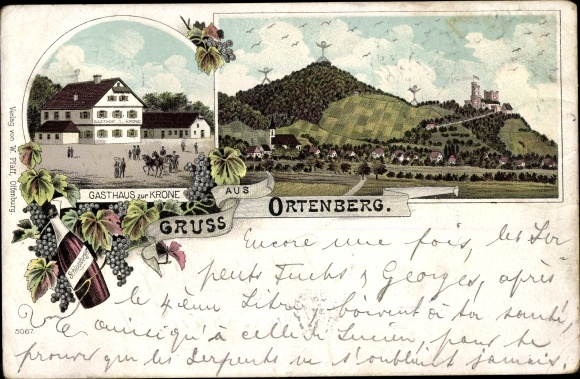 GASTHOF Z. KRONE
GASTHAUS zur KRONE
GRUSS
AUS
ORTENBERG.
Verlag von W. Platz, Offenburg.
5067.
Encore une fois, les Ser
pents Fuchs & Georges, après
le 4ème Litre, boivent à ta santé,
ainsi qu'à celle de Lucien, pour te
prouver que les serpents ne s'oublient jamais.